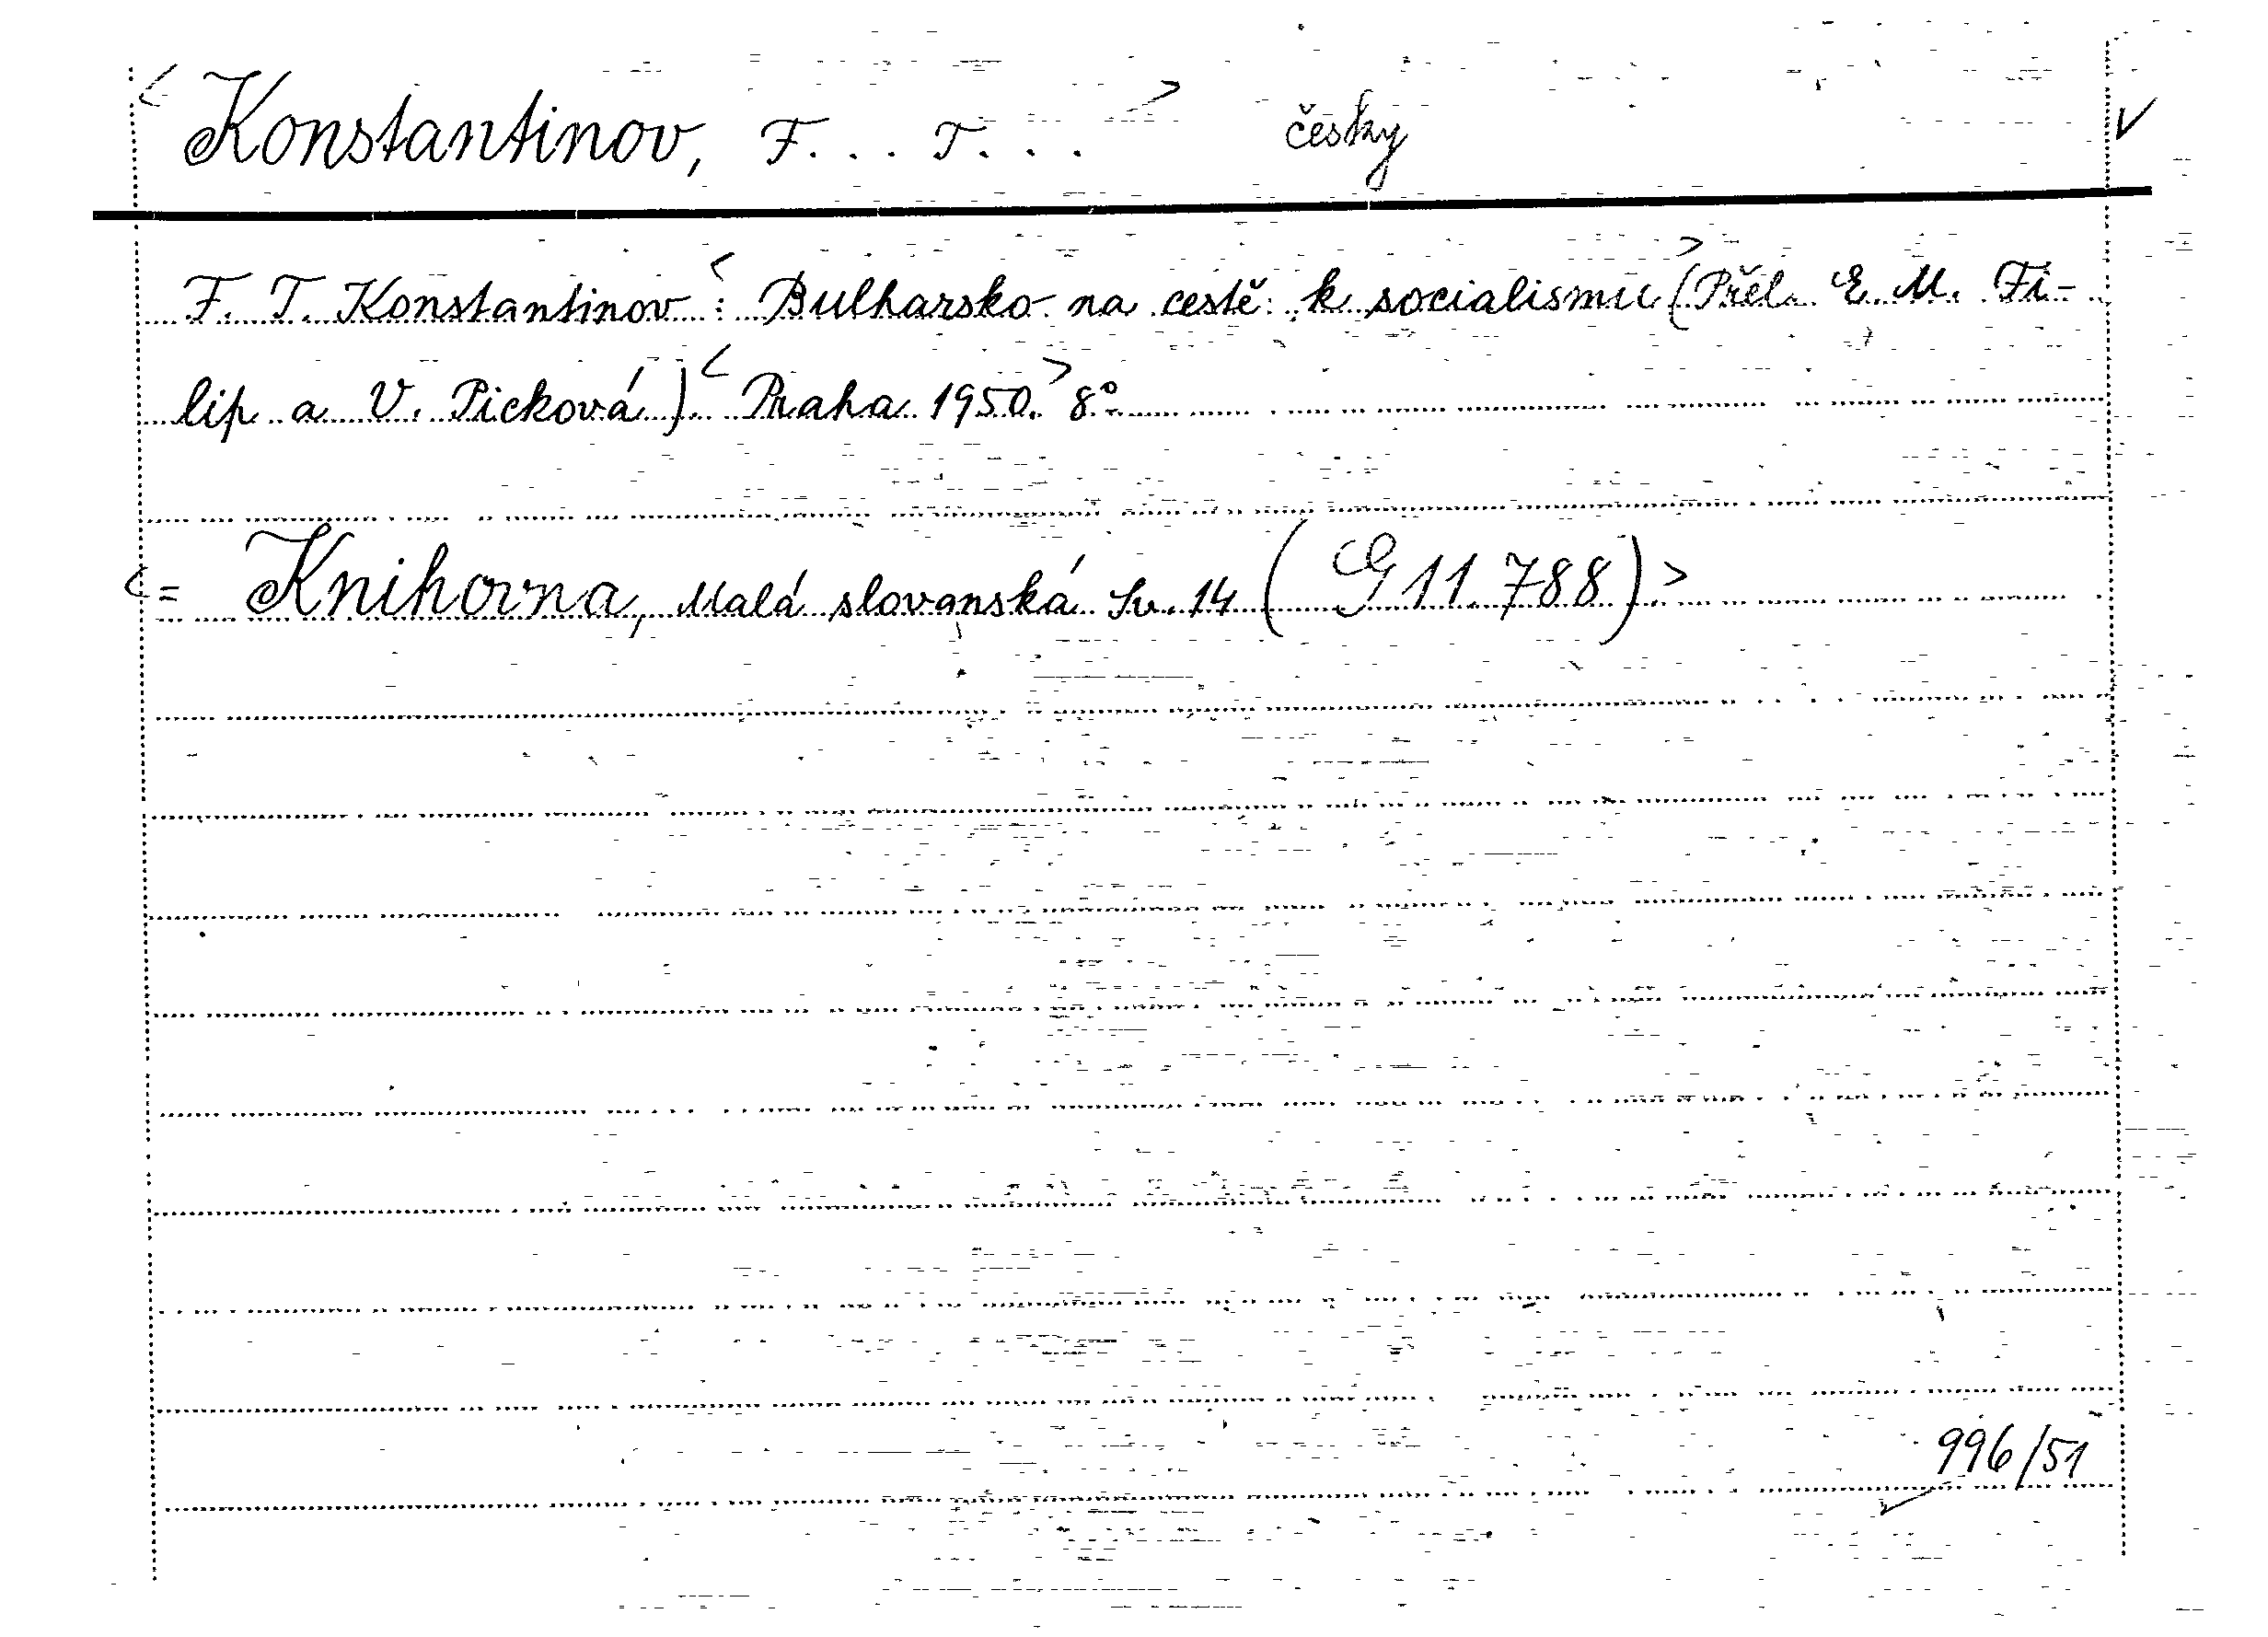 < Konstantinov, F... T... > česky V
F. T. Konstantinov: < Bulharsko na cestě k socialismu > (Přel. E. M. Fi-
lip a V. Picková). < Praha 1950. > 8°.
<= Knihovna, Malá slovanská Sv. 14 (G 11.788). >
996/51